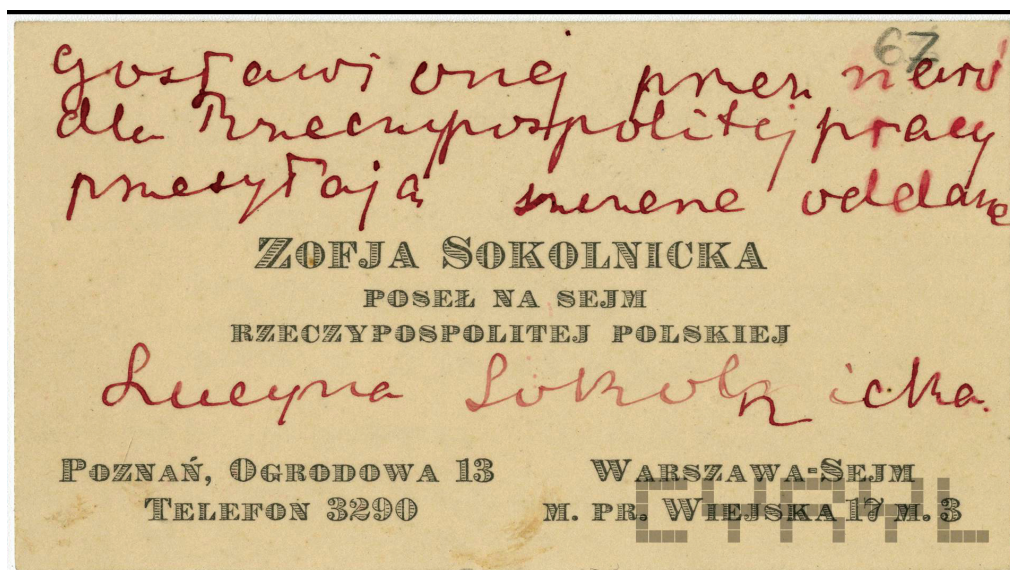 67
dla Rzeczypospolitej pracy
przesyłają szczere oddane
ZOFJA SOKOLNICKA
POSEŁ NA SEJM
RZECZYPOSPOLITEJ POLSKIEJ
Lucyna Sokolnicka.
POZNAŃ, OGRODOWA 13
TELEFON 3290
WARSZAWA-SEJM
M. PR. WIEJSKA 17 M. 3
CYRYL